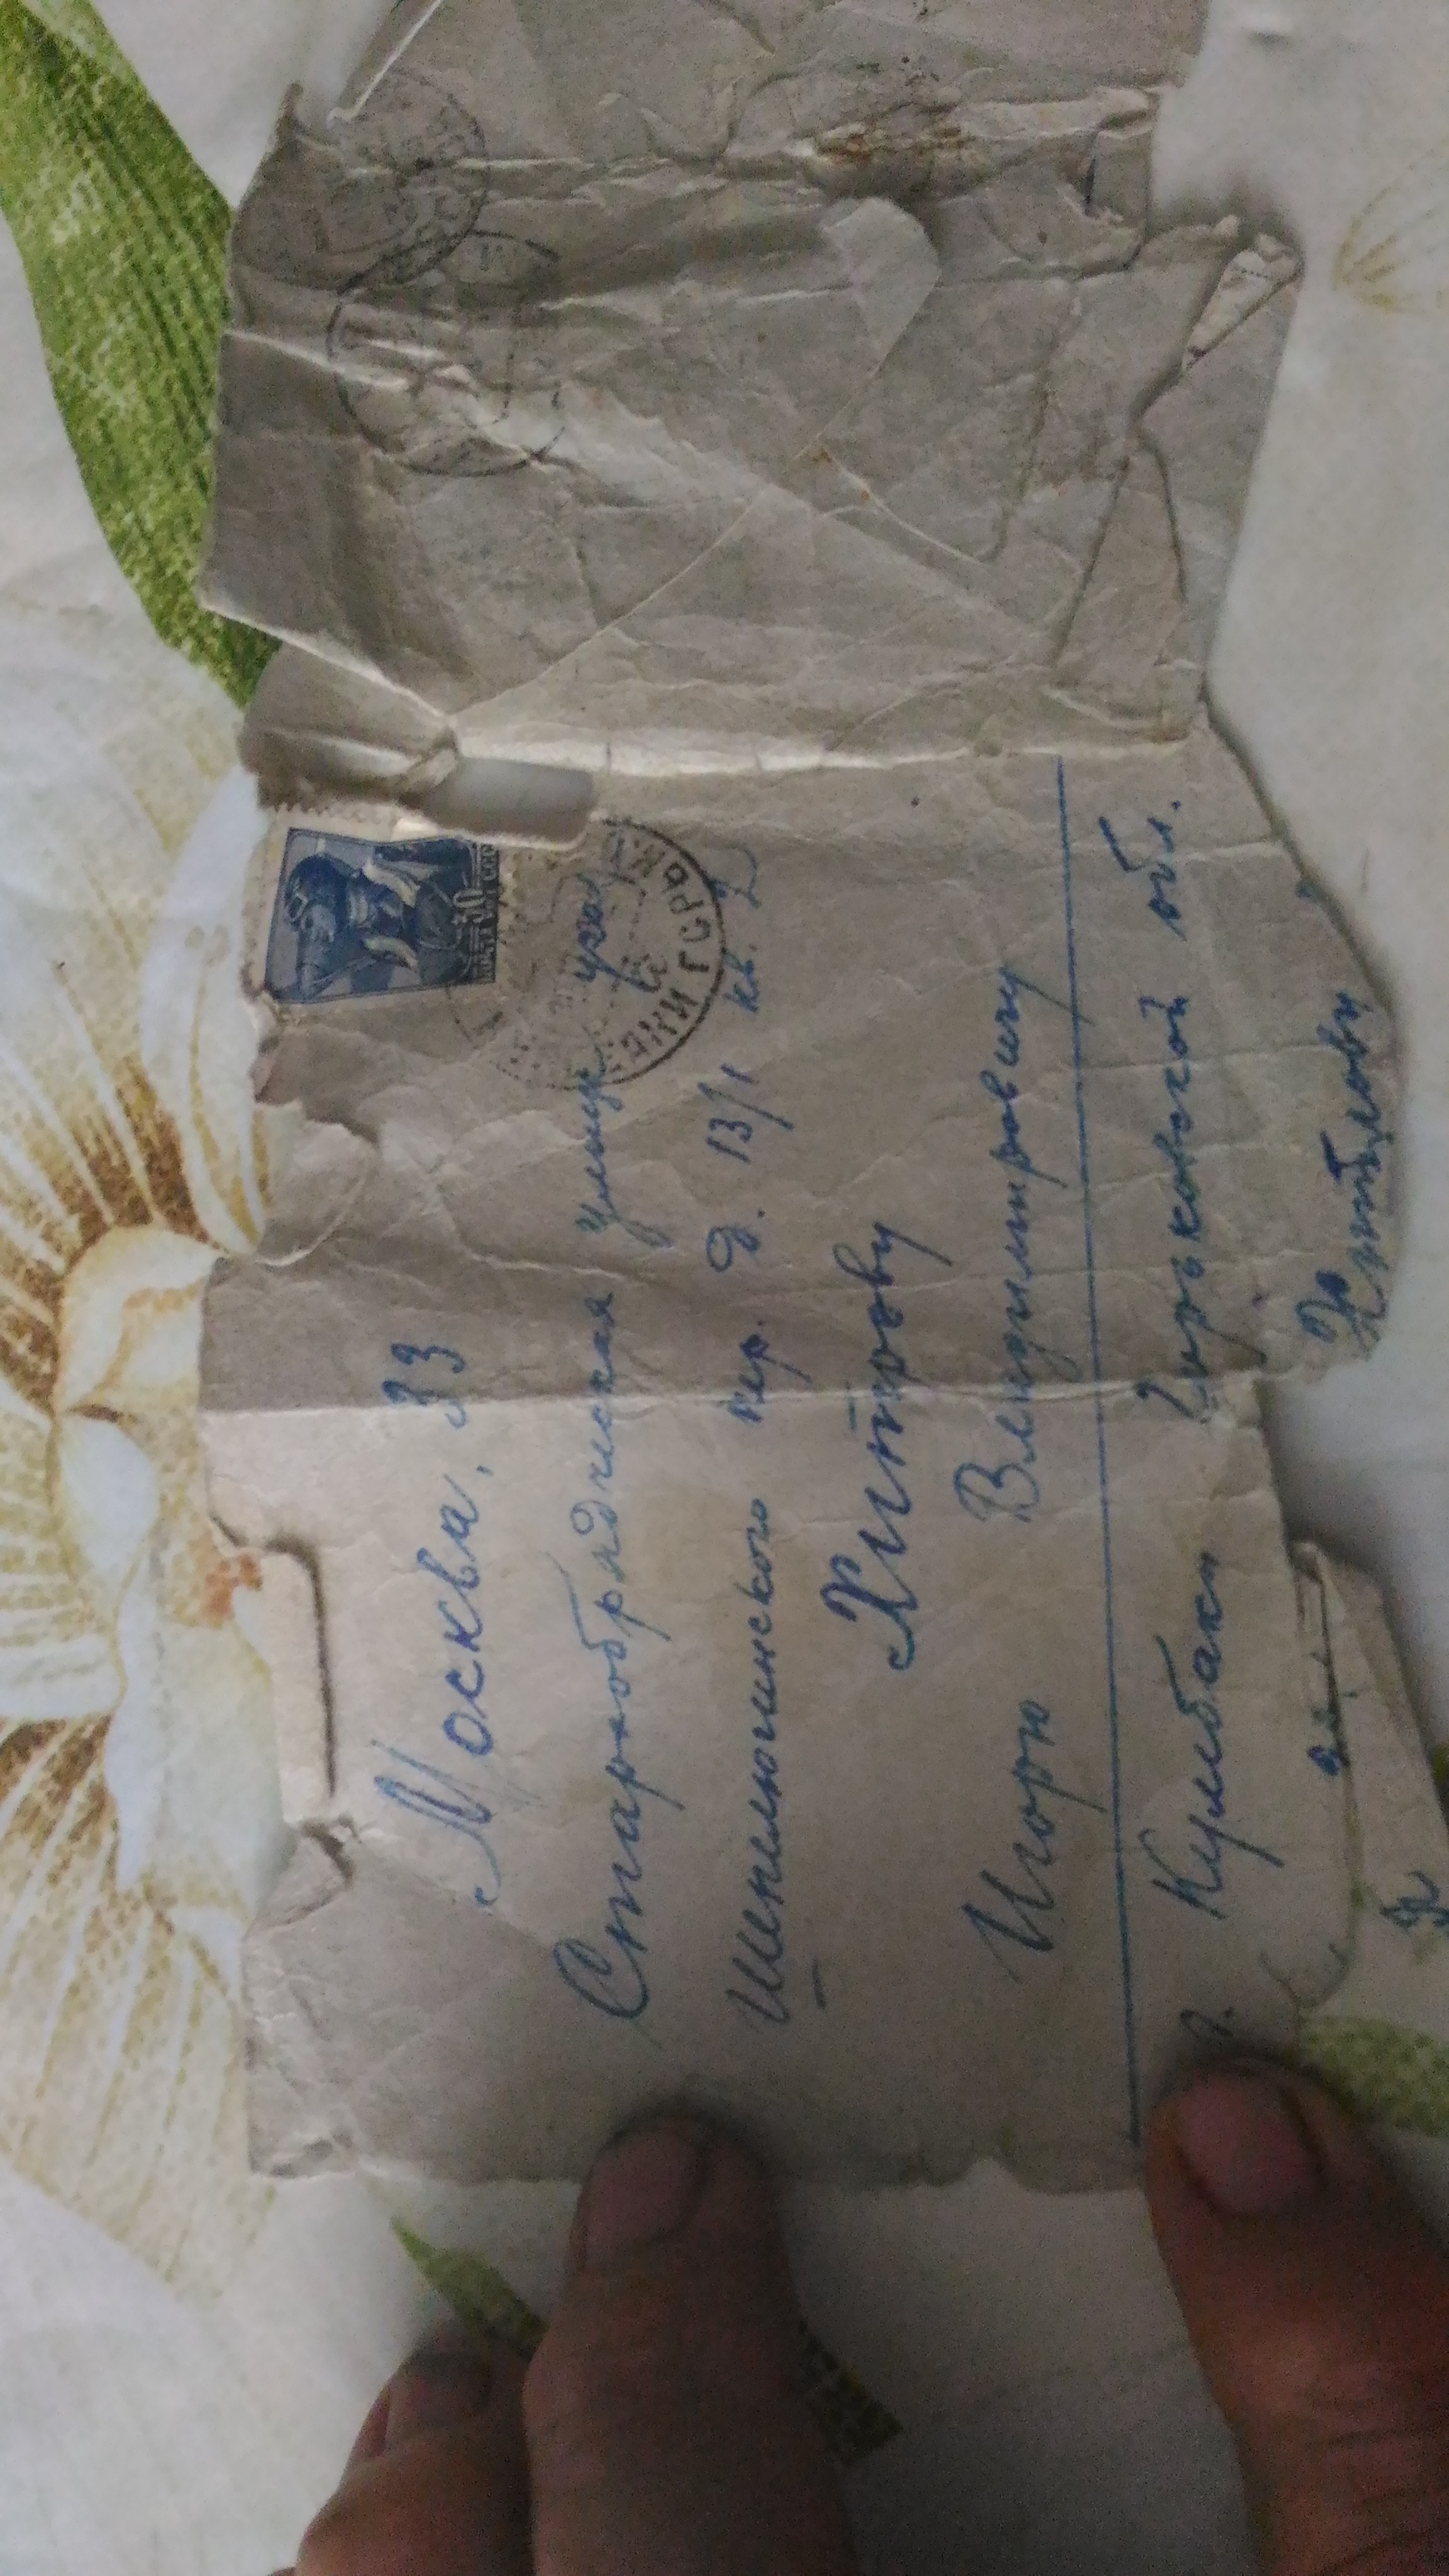 Москва, 33
Старообрядческая улица угол
Шепелюгинского пер. д. 13/1 кв. 2
Хитрову
Игорю Владимировичу
г. Кулебаки Горьковской обл.
30
ПОЧТА СССР
ГОРЬК